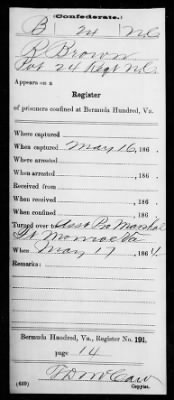 (Confederate.)
B 24 N.C.
R. Brown
Pvt 24 Regt N.C.
Appears on a
Register
of prisoners confined at Bermuda Hundred, Va.
Where captured
When captured May 16, 186 .
Where arrested
When arrested , 186 .
Received from
When received , 186 .
When confined , 186 .
Turned over to Asst Pro Marshal
Ft Monroe Va
When May 17 , 1864.
Remarks:
Bermuda Hundred, Va., Register No. 191,
page 14
(639) Copyist.